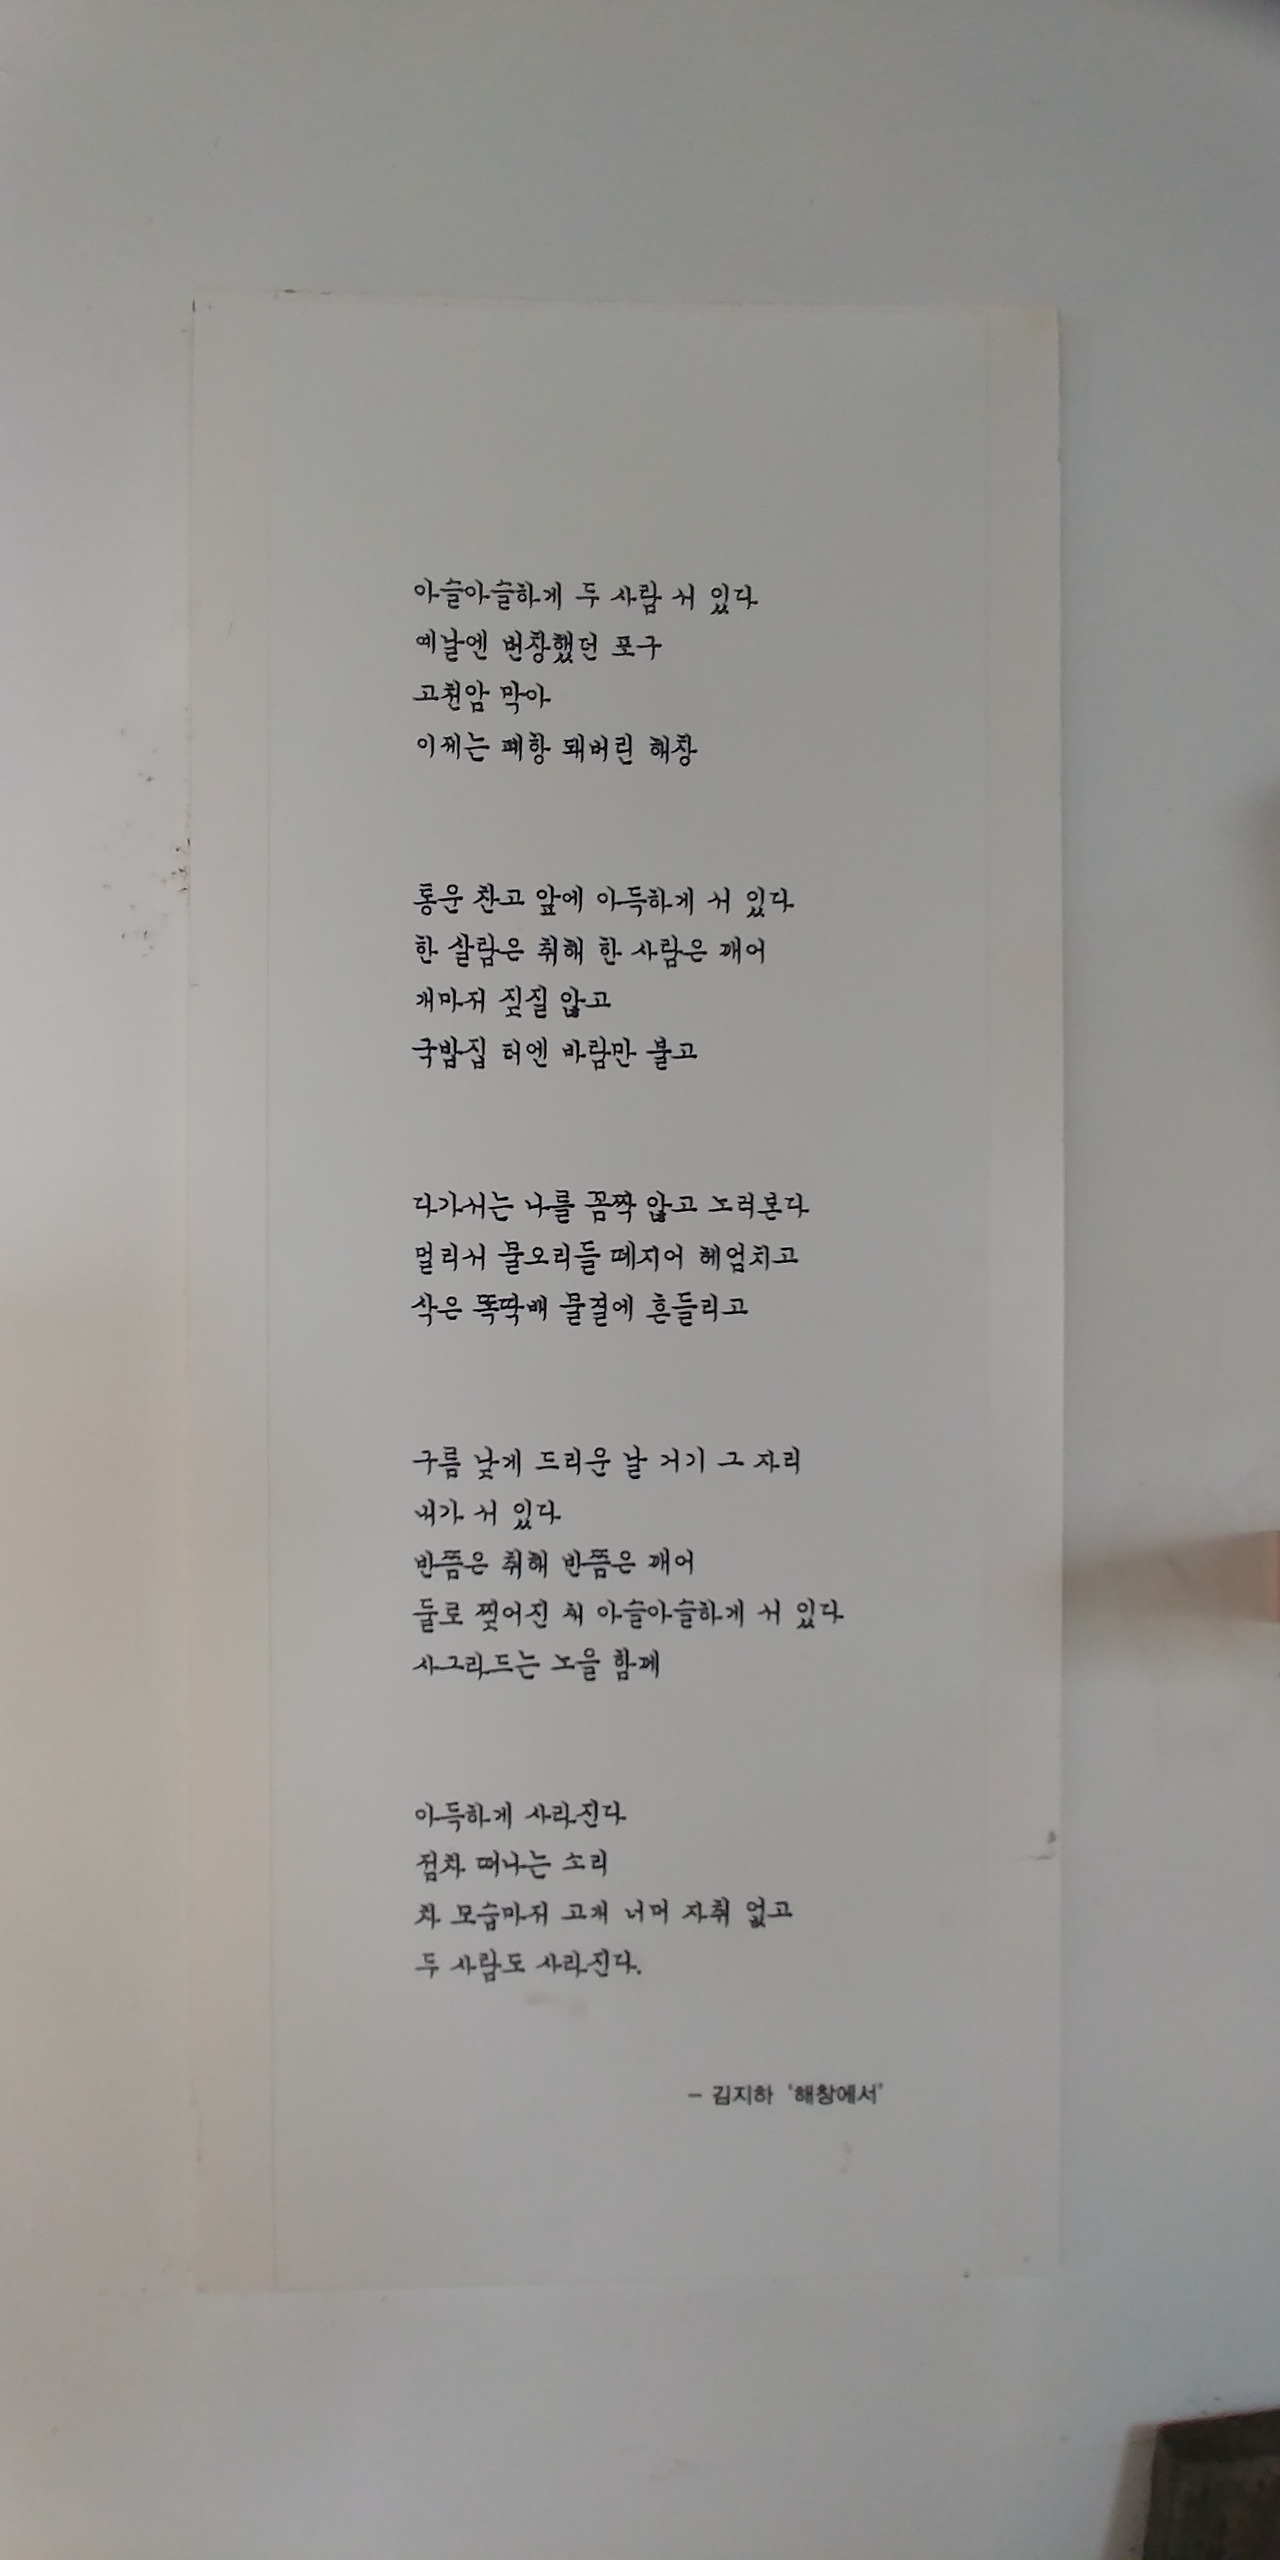 아슬아슬하게 두 사람 서 있다
예날엔 번창했던 포구
고천암 막아
이제는 폐항 돼버린 해창
통운 찬고 앞에 아득하게 서 있다
한 살람은 취해 한 사람은 깨어
개마저 짖질 않고
국밥집 터엔 바람만 불고
다가서는 나를 꼼짝 않고 노려본다
멀리서 물오리들 떼지어 헤엄치고
삭은 똑딱배 물결에 흔들리고
구름 낮게 드리운 날 거기 그 자리
내가 서 있다
반쯤은 취해 반쯤은 깨어
둘로 찢어진 채 아슬아슬하게 서 있다
사그라드는 노을 함께
아득하게 사라진다
점차 떠나는 소리
차 모습마저 고개 너머 자취 없고
두 사람도 사라진다.
- 김지하 '해창에서'